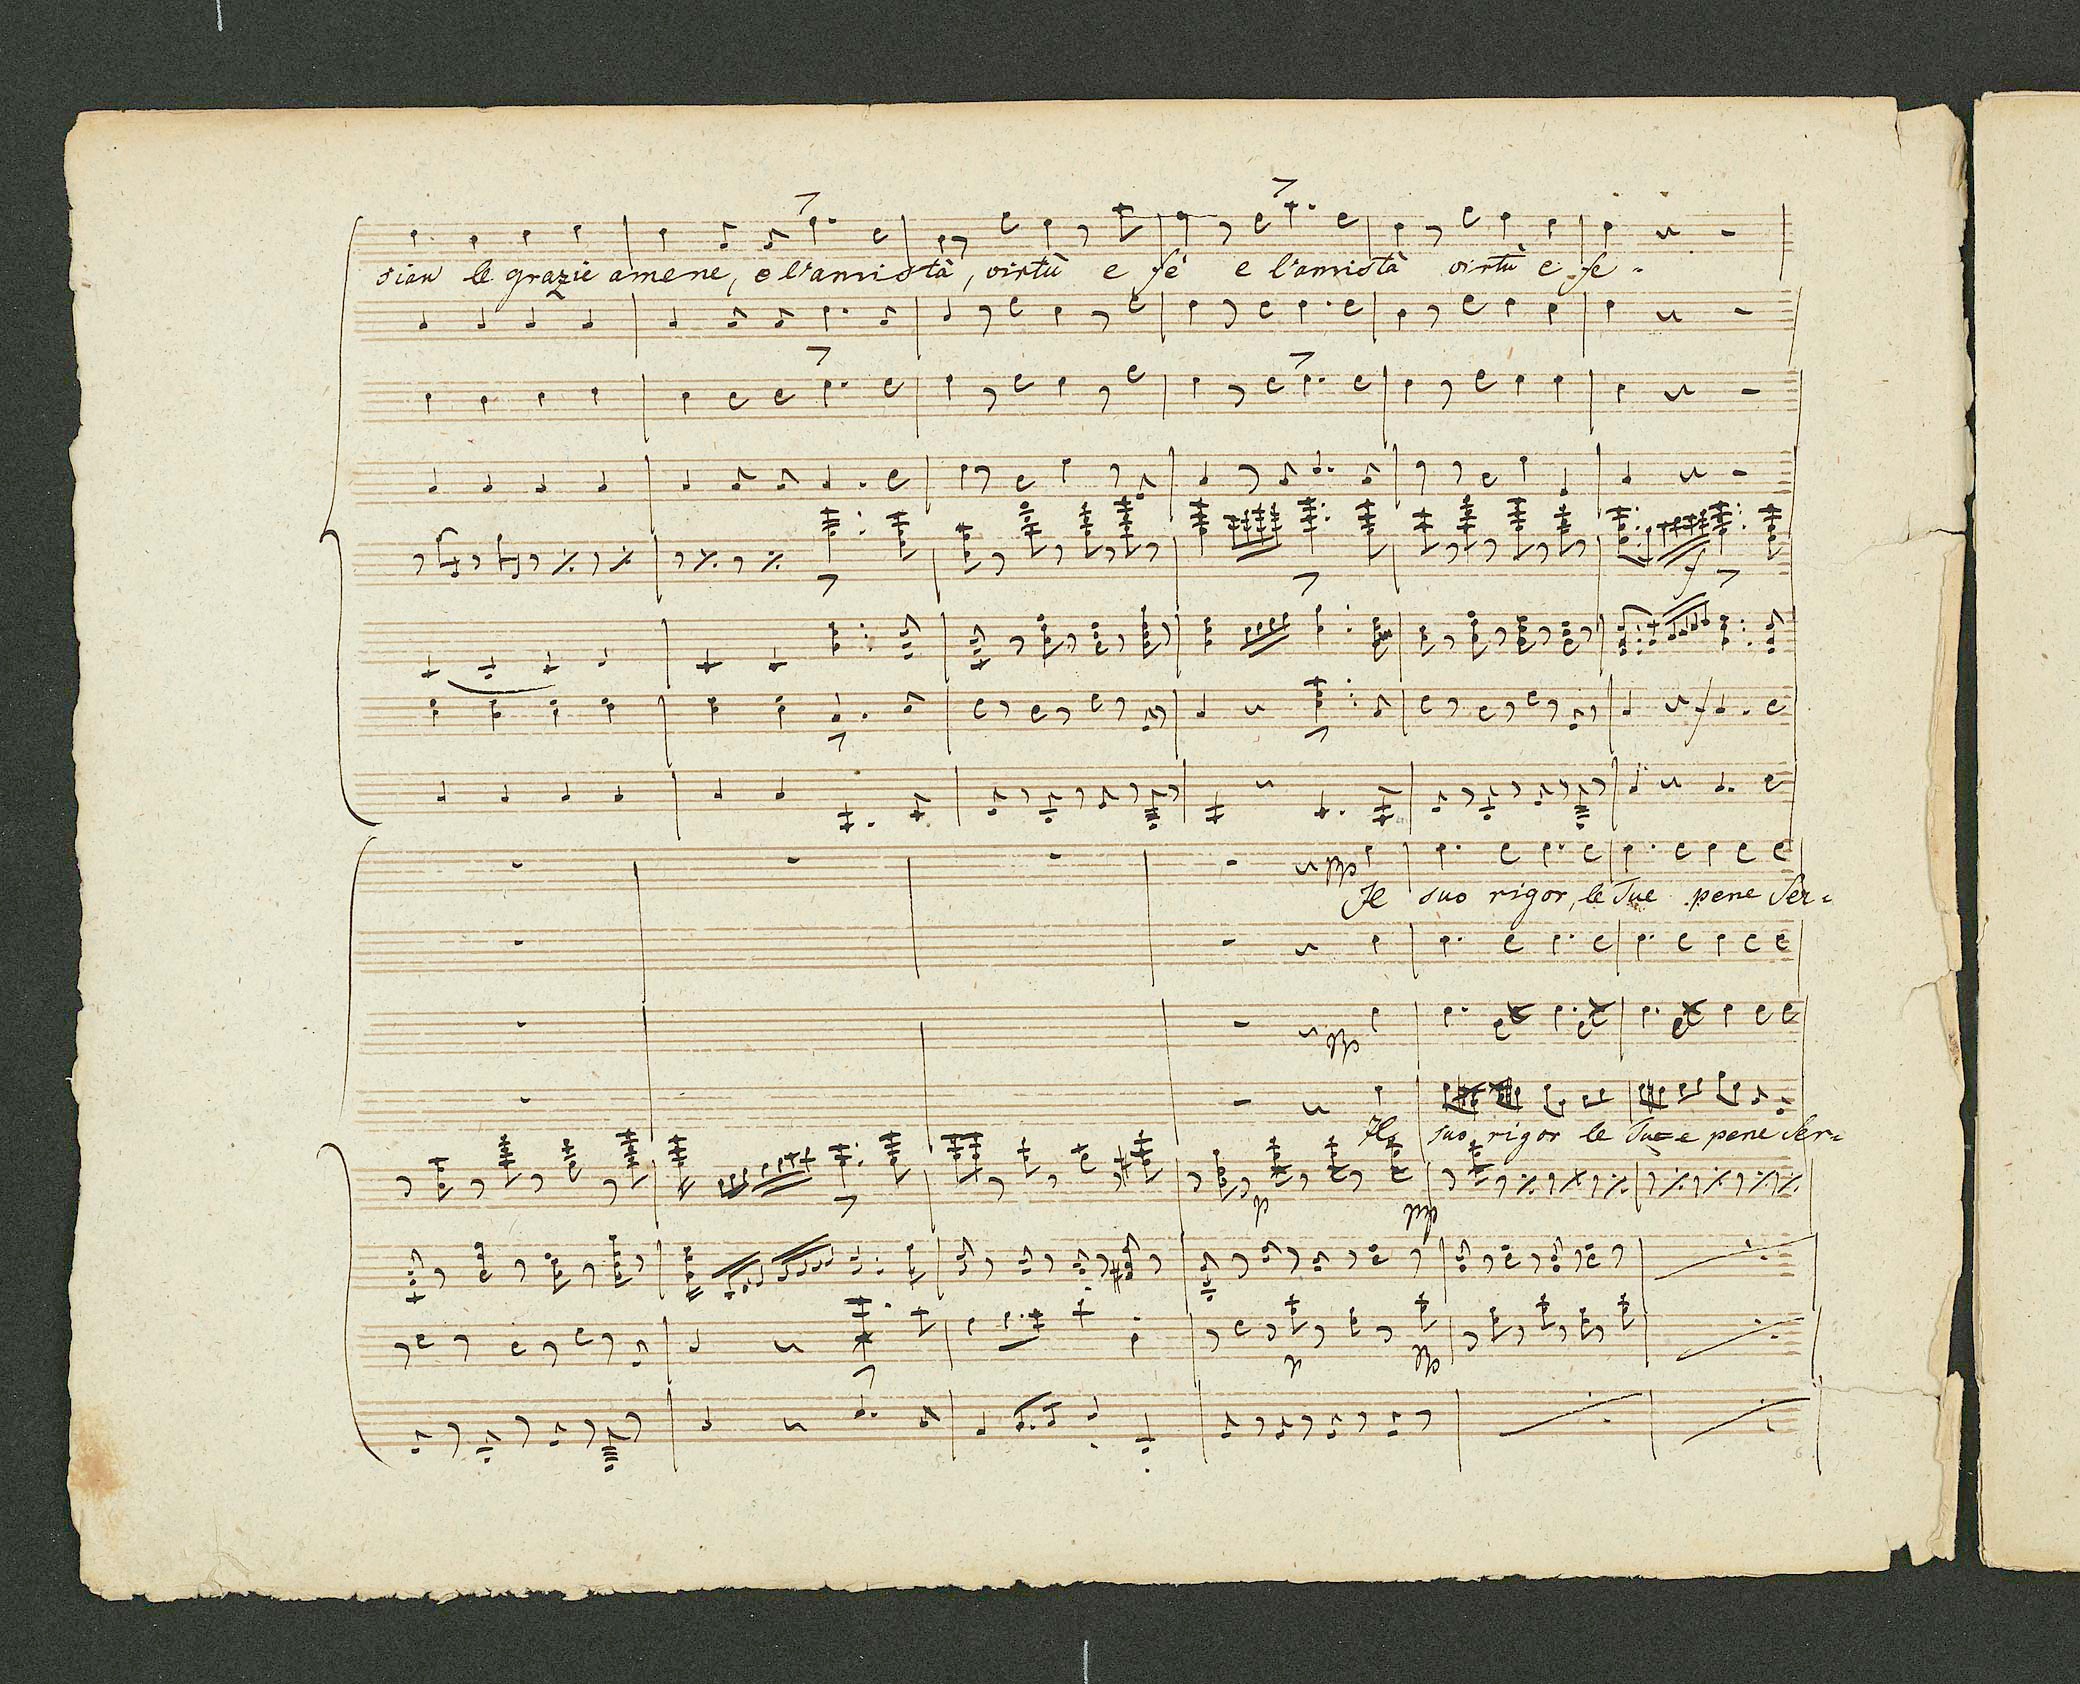 sian le grazie amene, e l'amistà, virtù e fè e l'amistà virtù e fe -
f
f
pp
Il suo rigor, le tue pene Ser=
pp
Il suo rigor le tu=e pene Ser=
p pp
p pp
6